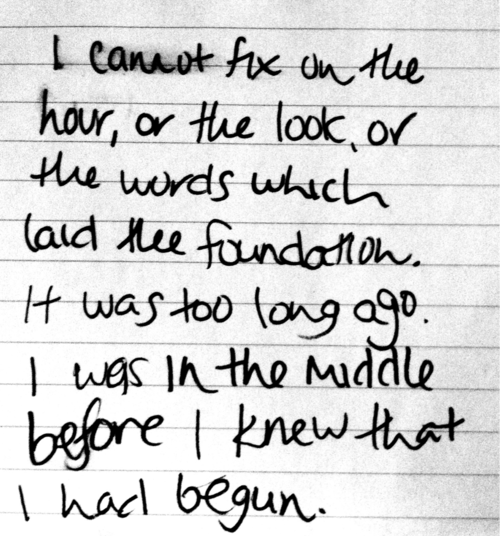 I cannot fix on the
hour, or the look, or
the words which
laid the foundation.
It was too long ago.
I was in the middle
before I knew that
I had begun.